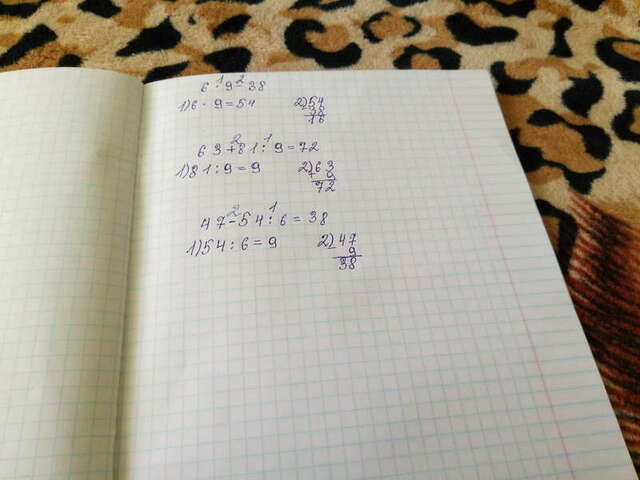 6 · 9 - 38
1) 6 · 9 = 54 2) 54
38
16
63 + 81 : 9 = 72
1) 81 : 9 = 9 2) 63
+ 9
72
47 - 54 : 6 = 38
1) 54 : 6 = 9 2) 47
- 9
38